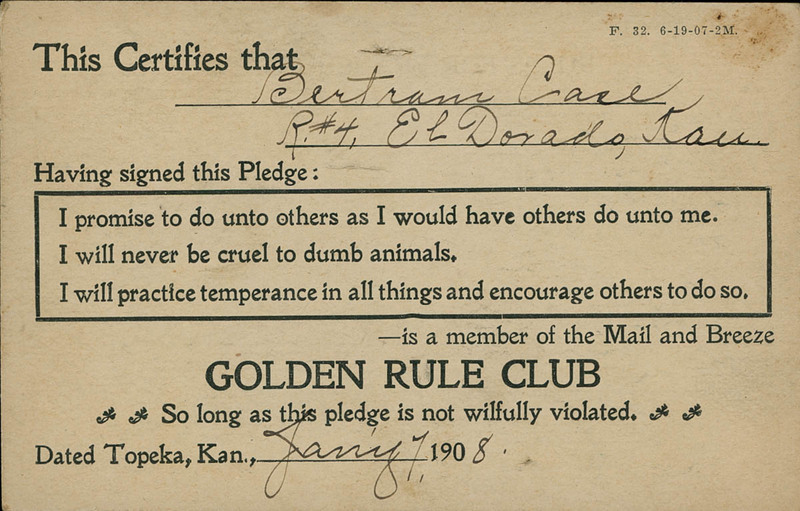 F. 32. 6-19-07-2M.
This Certifies that
Bertram Case
R.#4, El Dorado, Kan.
Having signed this Pledge:
I promise to do unto others as I would have others do unto me.
I will never be cruel to dumb animals.
I will practice temperance in all things and encourage others to do so.
—is a member of the Mail and Breeze
GOLDEN RULE CLUB
So long as this pledge is not wilfully violated.
Dated Topeka, Kan., Jan'y 7, 1908.